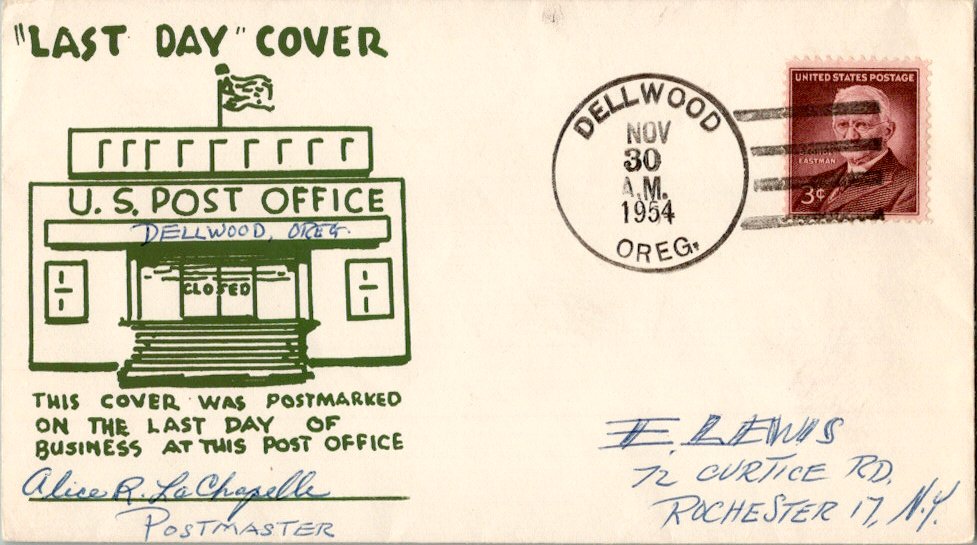 "LAST DAY" COVER
U.S. POST OFFICE
DELLWOOD, OREG.
CLOSED
THIS COVER WAS POSTMARKED
ON THE LAST DAY OF
BUSINESS AT THIS POST OFFICE
Alice R. LaChapelle
POSTMASTER
DELLWOOD
NOV
30
A.M.
1954
OREG.
UNITED STATES POSTAGE
EASTMAN
3¢
E. LEWIS
72 CURTICE RD.
ROCHESTER 17, N.Y.